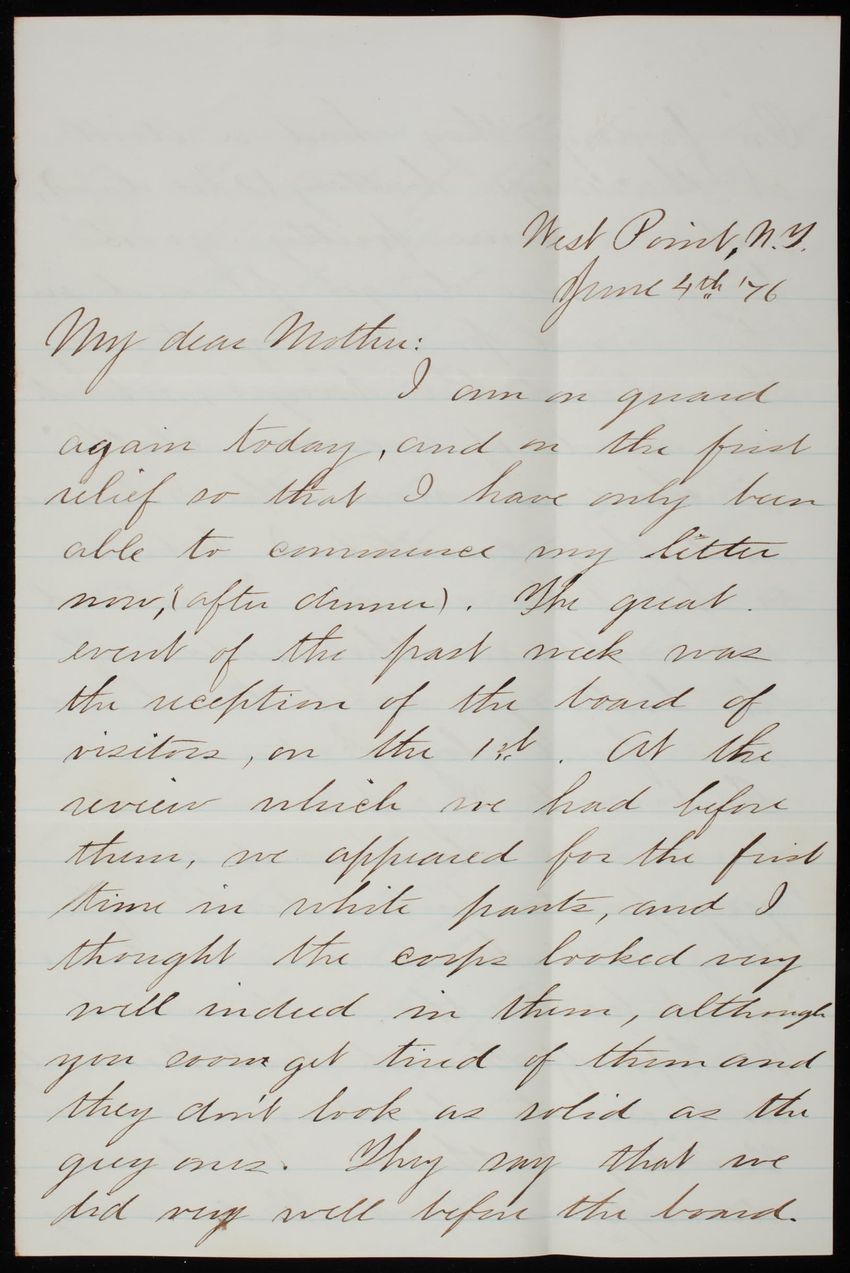 West Point, N.Y.
June 4th '76
My dear Mother:
I am on guard
again today, and on the first
relief so that I have only been
able to commence my letter
now, (after dinner). The great
event of the past week was
the reception of the board of
visitors, on the 1st. At the
review which we had before
them, we appeared for the first
time in white pants, and I
thought the corps looked very
well indeed in them, although
you soon get tired of them and
they don't look as solid as the
grey ones. They say that we
did very well before the board.